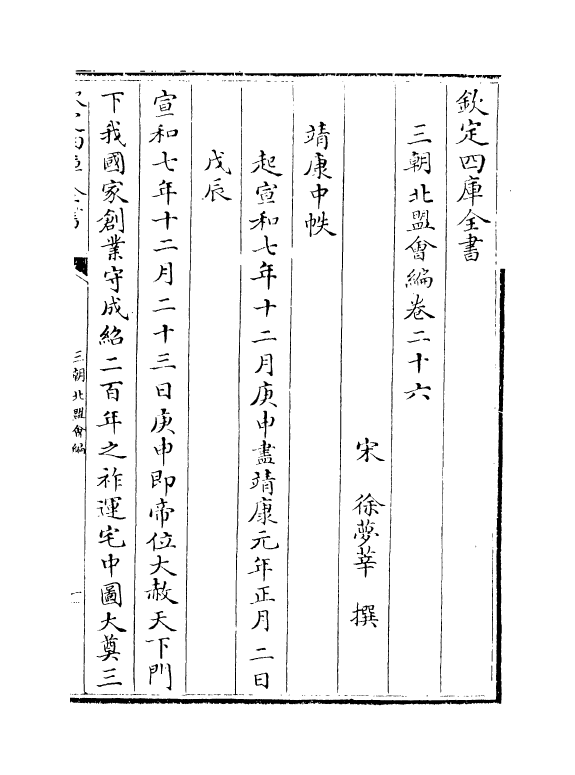 欽定四庫全書
三朝北盟會編卷二十六
宋　徐夢莘　撰
靖康中帙
起宣和七年十二月庚申盡靖康元年正月二日
戊辰
宣和七年十二月二十三日庚申即帝位大赦天下門
下我國家創業守成紹二百年之祚運宅中圖大奠三
三朝北盟會編
一